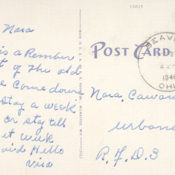 Nora
is a Remember
t of the old
e Come down
stay a week
or stay till
t week
said Hello
POST CARD
BEAVER
194
OHIO
Nora
Urbana
R.F.D.3